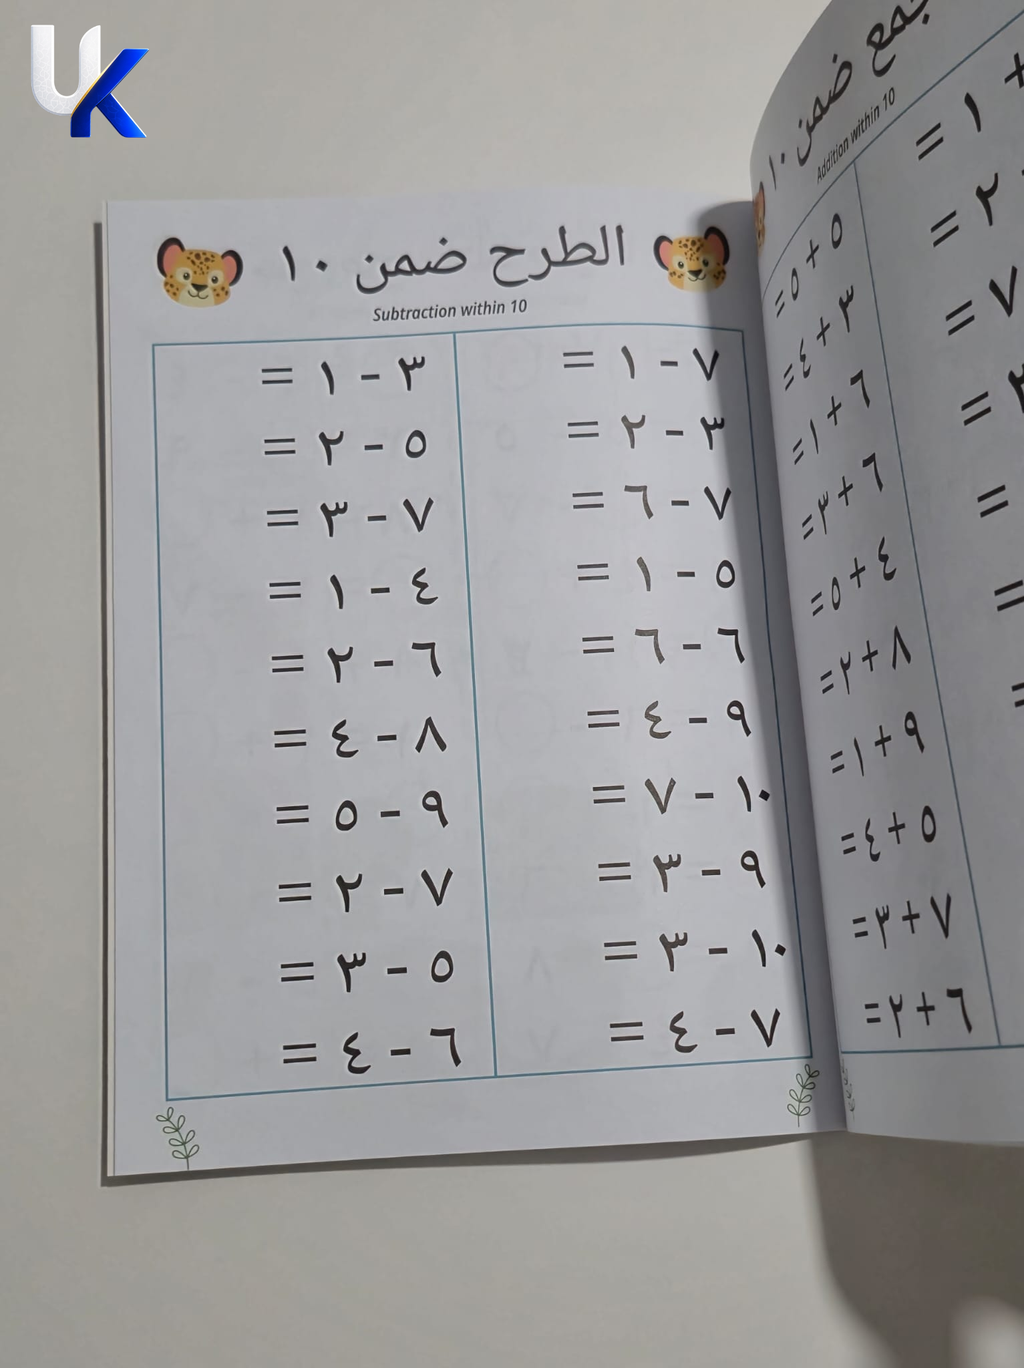 UK
جمع ضمن ١٠
Addition within 10
+ ١ =
٢ =
٧ =
٣ =
=
=
=
٥ + ٥ =
٣ + ٤ =
٦ + ١ =
٦ + ٣ =
٤ + ٥ =
٨ + ٢ =
٩ + ١ =
٥ + ٤ =
٧ + ٣ =
٦ + ٢ =
الطرح ضمن ١٠
Subtraction within 10
٧ - ١ =
٣ - ٢ =
٧ - ٦ =
٥ - ١ =
٦ - ٦ =
٩ - ٤ =
١٠ - ٧ =
٩ - ٣ =
١٠ - ٣ =
٧ - ٤ =
٣ - ١ =
٥ - ٢ =
٧ - ٣ =
٤ - ١ =
٦ - ٢ =
٨ - ٤ =
٩ - ٥ =
٧ - ٢ =
٥ - ٣ =
٦ - ٤ =